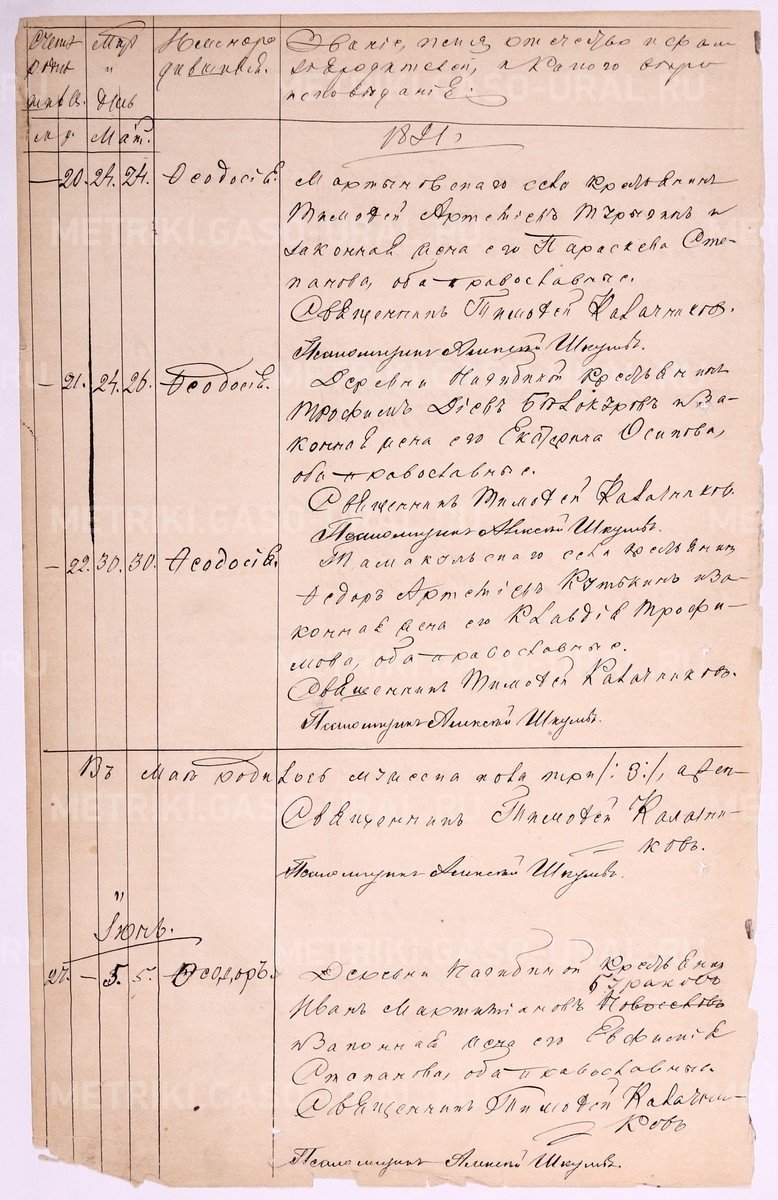 Счетъ родив
Мѣр и День
Имена ро дившихся.
Званіе, имя, отчество и фами
лія родителей, и какого вѣро
исповѣданія.
м. ж.
Маі.
1891 г.
— 20. 24. 24. Ѳеодосія. Мартыновскаго села крестьянинъ
Тимоѳей Артеміевъ и
законная жена его Параскева Сте-
панова, оба православные.
Священникъ Тимоѳей Калачниковъ.
Псаломщикъ Алексѣй
— 21. 24. 26. Ѳеодосія. Деревни Нагибиной крестьянинъ
Трофимъ Діевъ Бѣлокуровъ и за-
конная жена его Екатерина Осипова,
оба православные.
Священникъ Тимоѳей Калачниковъ.
Псаломщикъ Алексѣй
— 22. 30. 30. Ѳеодосія. Тамакульскаго села крестьянинъ
Ѳедоръ Артеміевъ Кутькинъ и за-
конная жена его Клавдія Трофи-
мова, оба православные.
Священникъ Тимоѳей Калачниковъ.
Псаломщикъ Алексѣй
Въ Маѣ родилось мужеска пола три /: 3 :/,
Священникъ Тимоѳей Калачни-
ковъ.
Псаломщикъ Алексѣй
Іюнь.
27. — 5. 5. Ѳеодоръ. Деревни Нагибиной крестьянинъ
Бураковъ
Иванъ Мартиніановъ
и законная жена его Евфимія
Степанова, оба православные.
Священникъ Тимоѳей Калачни-
ковъ
Псаломщикъ Алексѣй
METRIKI.GASO-URAL.RU